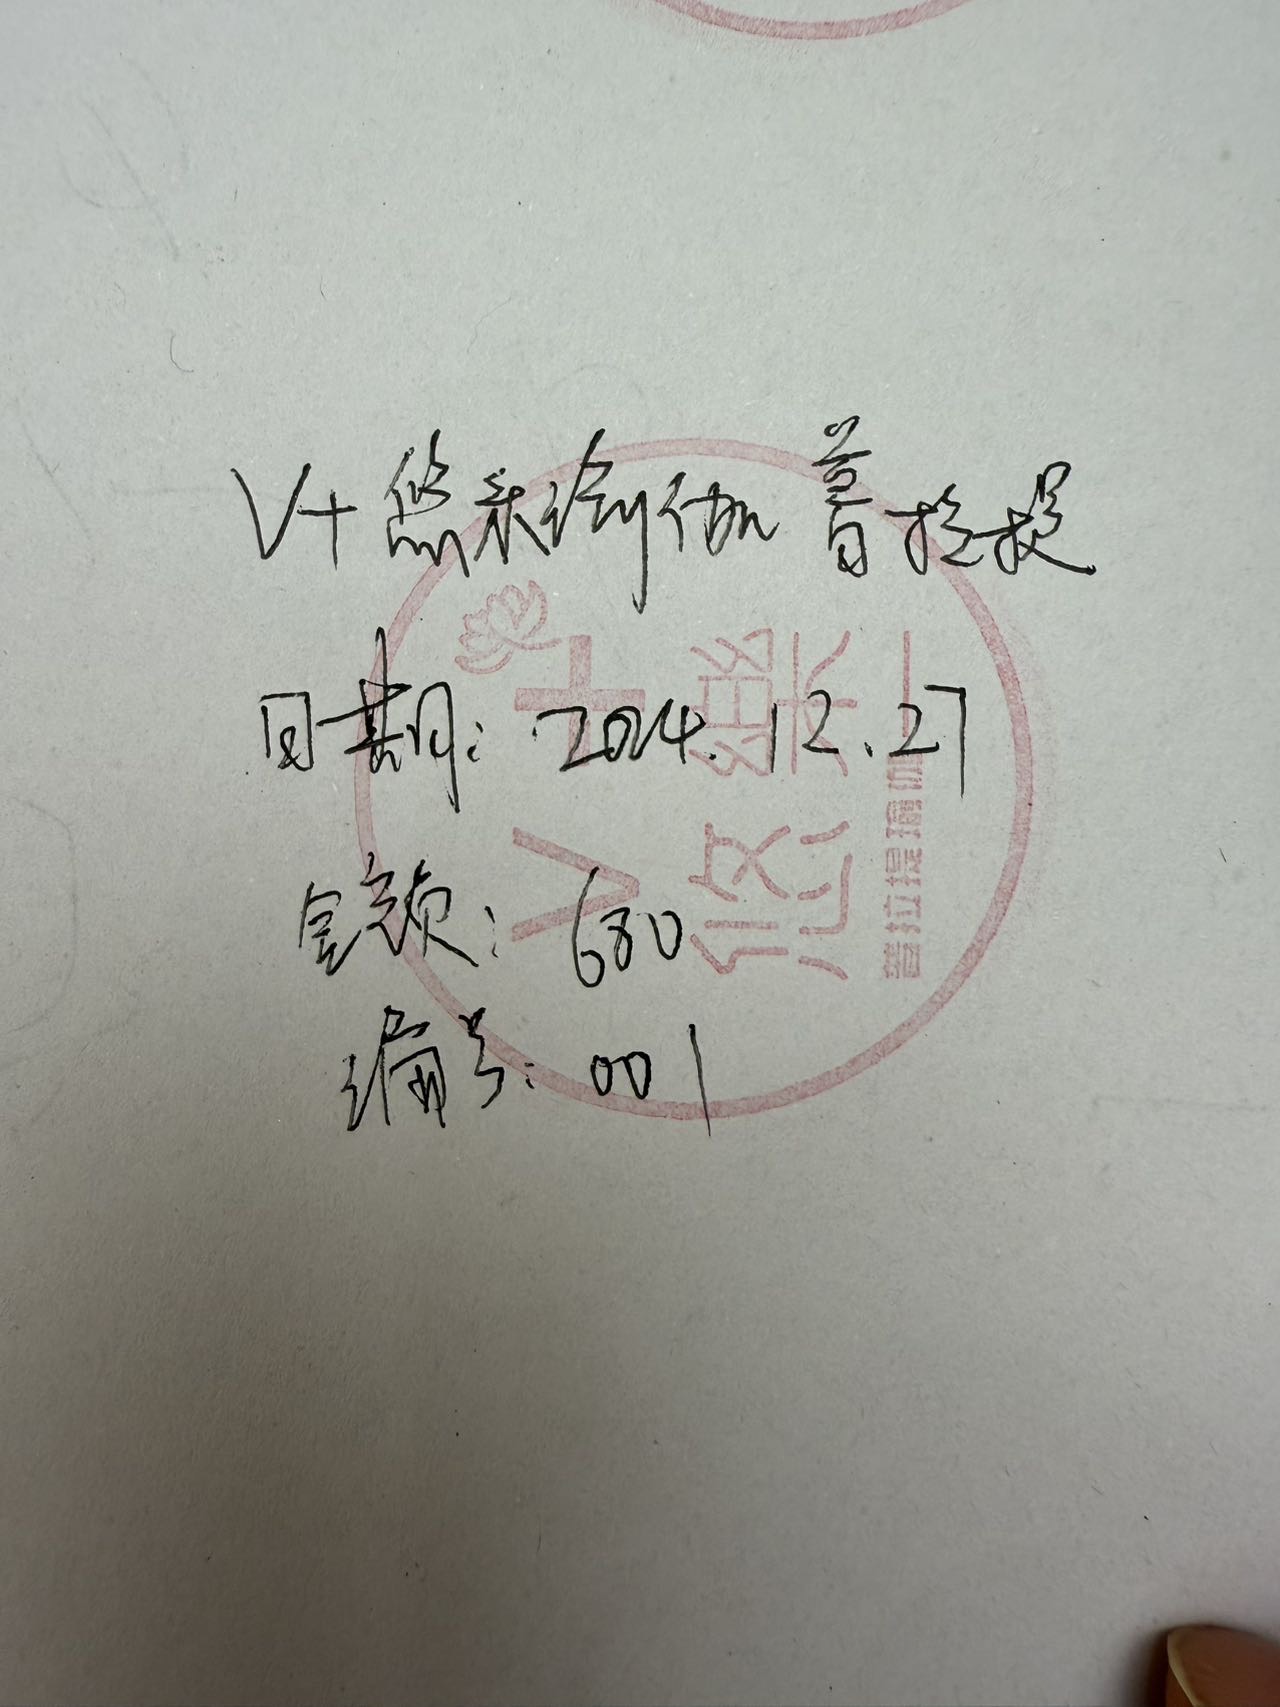 V+悠采瑜伽普拉提
日期: 2024.12.27
金额: 680
编号: 001
V+
悠 綵
普拉提瑜伽